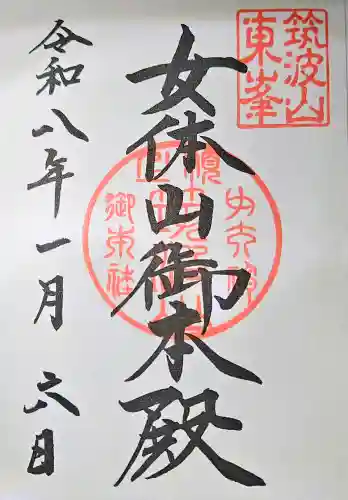 筑波山
東峯
女体山御本殿
令和八年一月六日